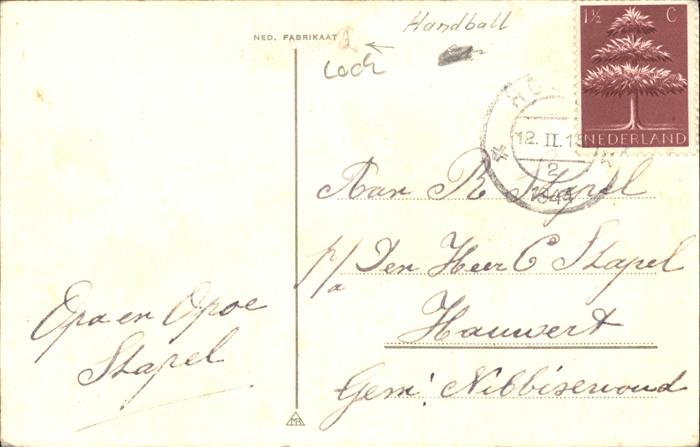 NED. FABRIKAAT
Handball
1½ C
NEDERLAND
12. II. 1
2
1944
Aan R Stapel
p/a Den Heer C Stapel
Hauwert
Gem: Nibbixwoud
Opa en Opoe
Stapel